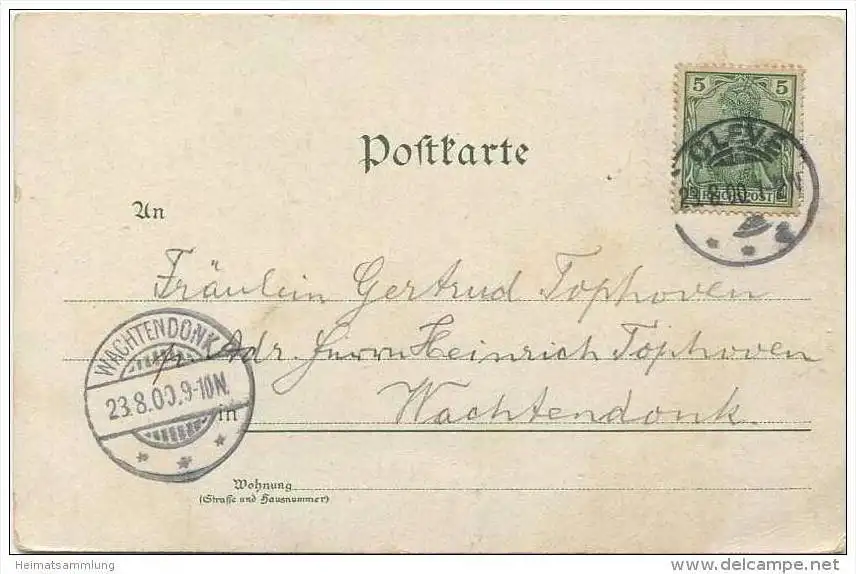 5 5
CLEVE
23.8.00.1-2N
REICHSPOST
Postkarte
An
Fräulein Gertrud Tophoven
p. Adr. Herrn Heinrich Tophoven
in Wachtendonk.
WACHTENDONK
23.8.00.9-10N.
Wohnung
(Straße und Hausnummer)
Heimatsammlung
www.delcampe.net